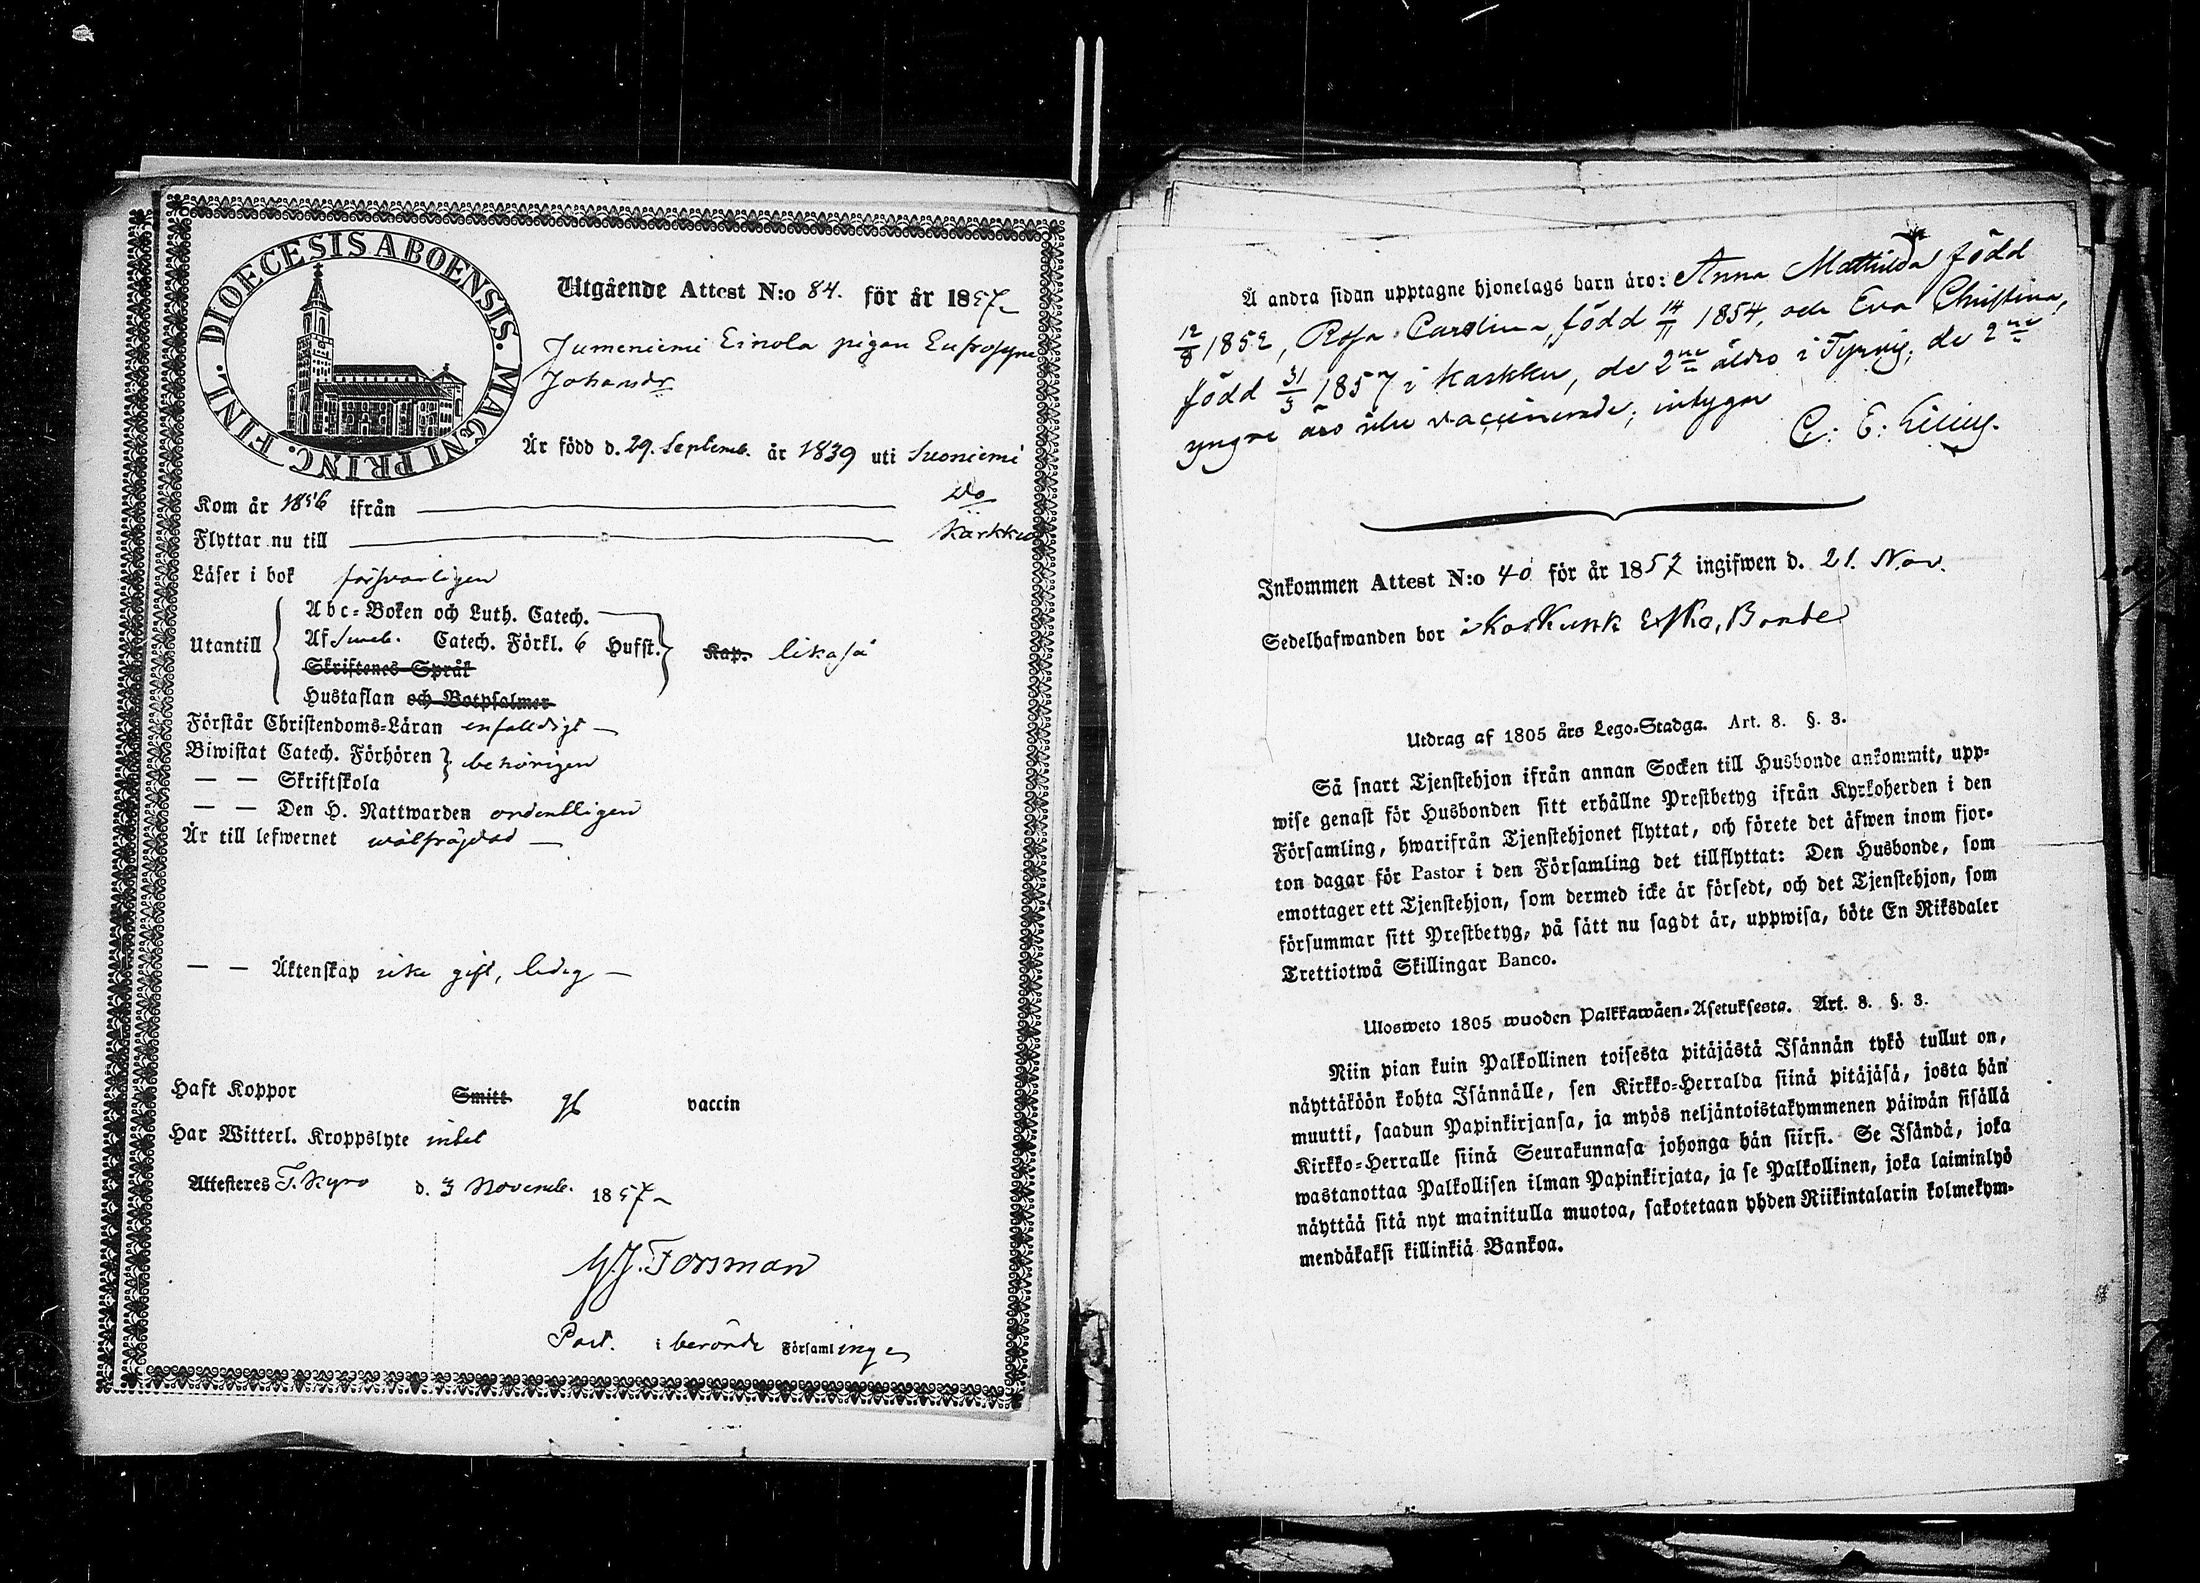 DIOECESIS ABOENSIS. MAGNI PRINC. FINL.
Utgående Attest N:o 84. för år 1857
Jumeniemi Einola pigan Eufrosyne
Johansdr
Är född d. 29. Septemb. år 1839 uti Suoniemi
Kom år 1856 ifrån Do
Flyttar nu till Karkku
Läser i bok försvarligen
Utantill
Abc-Boken och Luth. Catech.
Af Sveb. Catech. Förkl. 6 Hufst. Kap. likaså
Skriftenes Språk
Hustaflan och Botpsalmer
Förstår Christendoms-Läran enfaldigt
Biwistat Catech. Förhören behörigen
— — Skriftskola
— — Den H. Nattwarden ordentligen
Är till lefwernet wälfrägdad
— — Äktenskap icke gift, ledig
Haft Koppor Smitt vaccin
Har Witterl. Kroppslyte intet
Attesteres T. Kyro d. 3 Novemb. 1857
Forsman
Past. i berörde Församlinge
Å andra sidan upptagne hjonelags barn äro: Anna Mathilda född
12/8 1852, Rosa Carolina, född 14/11 1854, och Eva Christina,
född 31/3 1857 i Karkku, de 2ne äldre i Tyrvis, de 2ne
yngre äro icke vaccinerade, intygar
C. E. Lilius.
Inkommen Attest N:o 40 för år 1857 ingifwen d. 21. Nov.
Sedelhafwanden bor i Bonde
Utdrag af 1805 års Lego-Stadga. Art. 8. §. 3.
Så snart Tjenstehjon ifrån annan Socken till Husbonde ankommit, upp-
wise genast för Husbonden sitt erhållne Prestbetyg ifrån Kyrkoherden i den
Församling, hwarifrån Tjenstehjonet flyttat, och förete det äfwen inom fjor-
ton dagar för Pastor i den Församling det tillflyttat: Den Husbonde, som
emottager ett Tjenstehjon, som dermed icke är försedt, och det Tjenstehjon, som
försummar sitt Prestbetyg, på sätt nu sagdt är, uppwisa, böte En Riksdaler
Trettiotwå Skillingar Banco.
Ulosweto 1805 wuoden Palkkawäen-Asetuksesta. Art. 8. §. 3.
Niin pian kuin Palkollinen toisesta pitäjästä Isännän tykö tullut on,
näyttäköön kohta Isännälle, sen Kirkko-Herralda siinä pitäjäsä, josta hän
muutti, saadun Papinkirjansa, ja myös neljäntoistakymmenen päiwän sisällä
Kirkko-Herralle siinä Seurakunnasa johonga hän siirsi. Se Isändä, joka
wastanottaa Palkollisen ilman Papinkirjata, ja se Palkollinen, joka laiminlyö
näyttää sitä nyt mainitulla muotoa, sakotetaan yhden Riikintalarin kolmekym-
mendäkaksi killinkiä Bankoa.